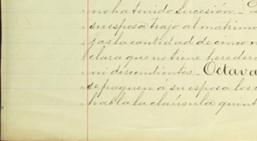 no ha tenido sucesión.-
su esposa trajo al matrim
gas la cantidad de cinco
clara que no tiene heredero
ni descendientes.- Octava
se paguen á su esposa los
halla la cláusula quint